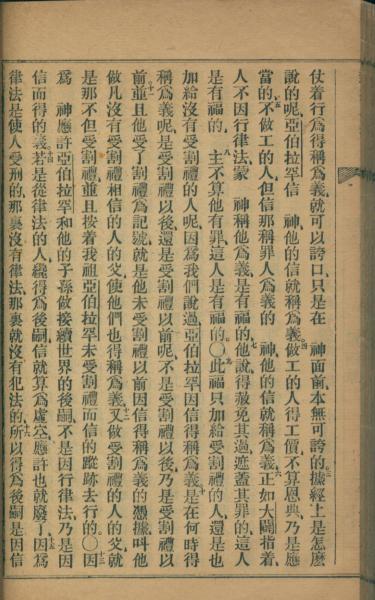 仗着行爲得稱爲義就可以誇口只是在　神面前本無可誇的三據經上是怎麼
說的呢亞伯拉罕信　神他的信就稱爲義四做工的人得工價不算恩典乃是應
當的五不做工的人但信那稱罪人爲義的　神他的信就稱爲義六正如大闢指着
人不因行律法蒙　神稱他爲義是有福的七他說得赦免其過遮蓋其罪的這人
是有福的八主不算他有罪這人是有福的○九此福只加給受割禮的人還是也
加給沒有受割禮的人呢因爲我們說過亞伯拉罕因信得稱爲義十是在何時得
稱爲義呢是受割禮以後還是受割禮以前呢不是受割禮以後乃是受割禮以
前十一並且他受了割禮爲記號就是他未受割禮以前因信得稱爲義的憑據叫他
做凡沒有受割禮相信的人的父使他們也得稱爲義十二又做受割禮的人的父就
是那不但受割禮並且按着我祖亞伯拉罕未受割禮而信的蹤跡去行的○十三因
爲　神應許亞伯拉罕和他的子孫做接續世界的後嗣不是因行律法乃是因
信而得的義十四若是從律法的人纔得爲後嗣信就算爲虛空應許也就廢了十五因爲
律法是使人受刑的那裏沒有律法那裏就沒有犯法的十六所以得爲後嗣是因信